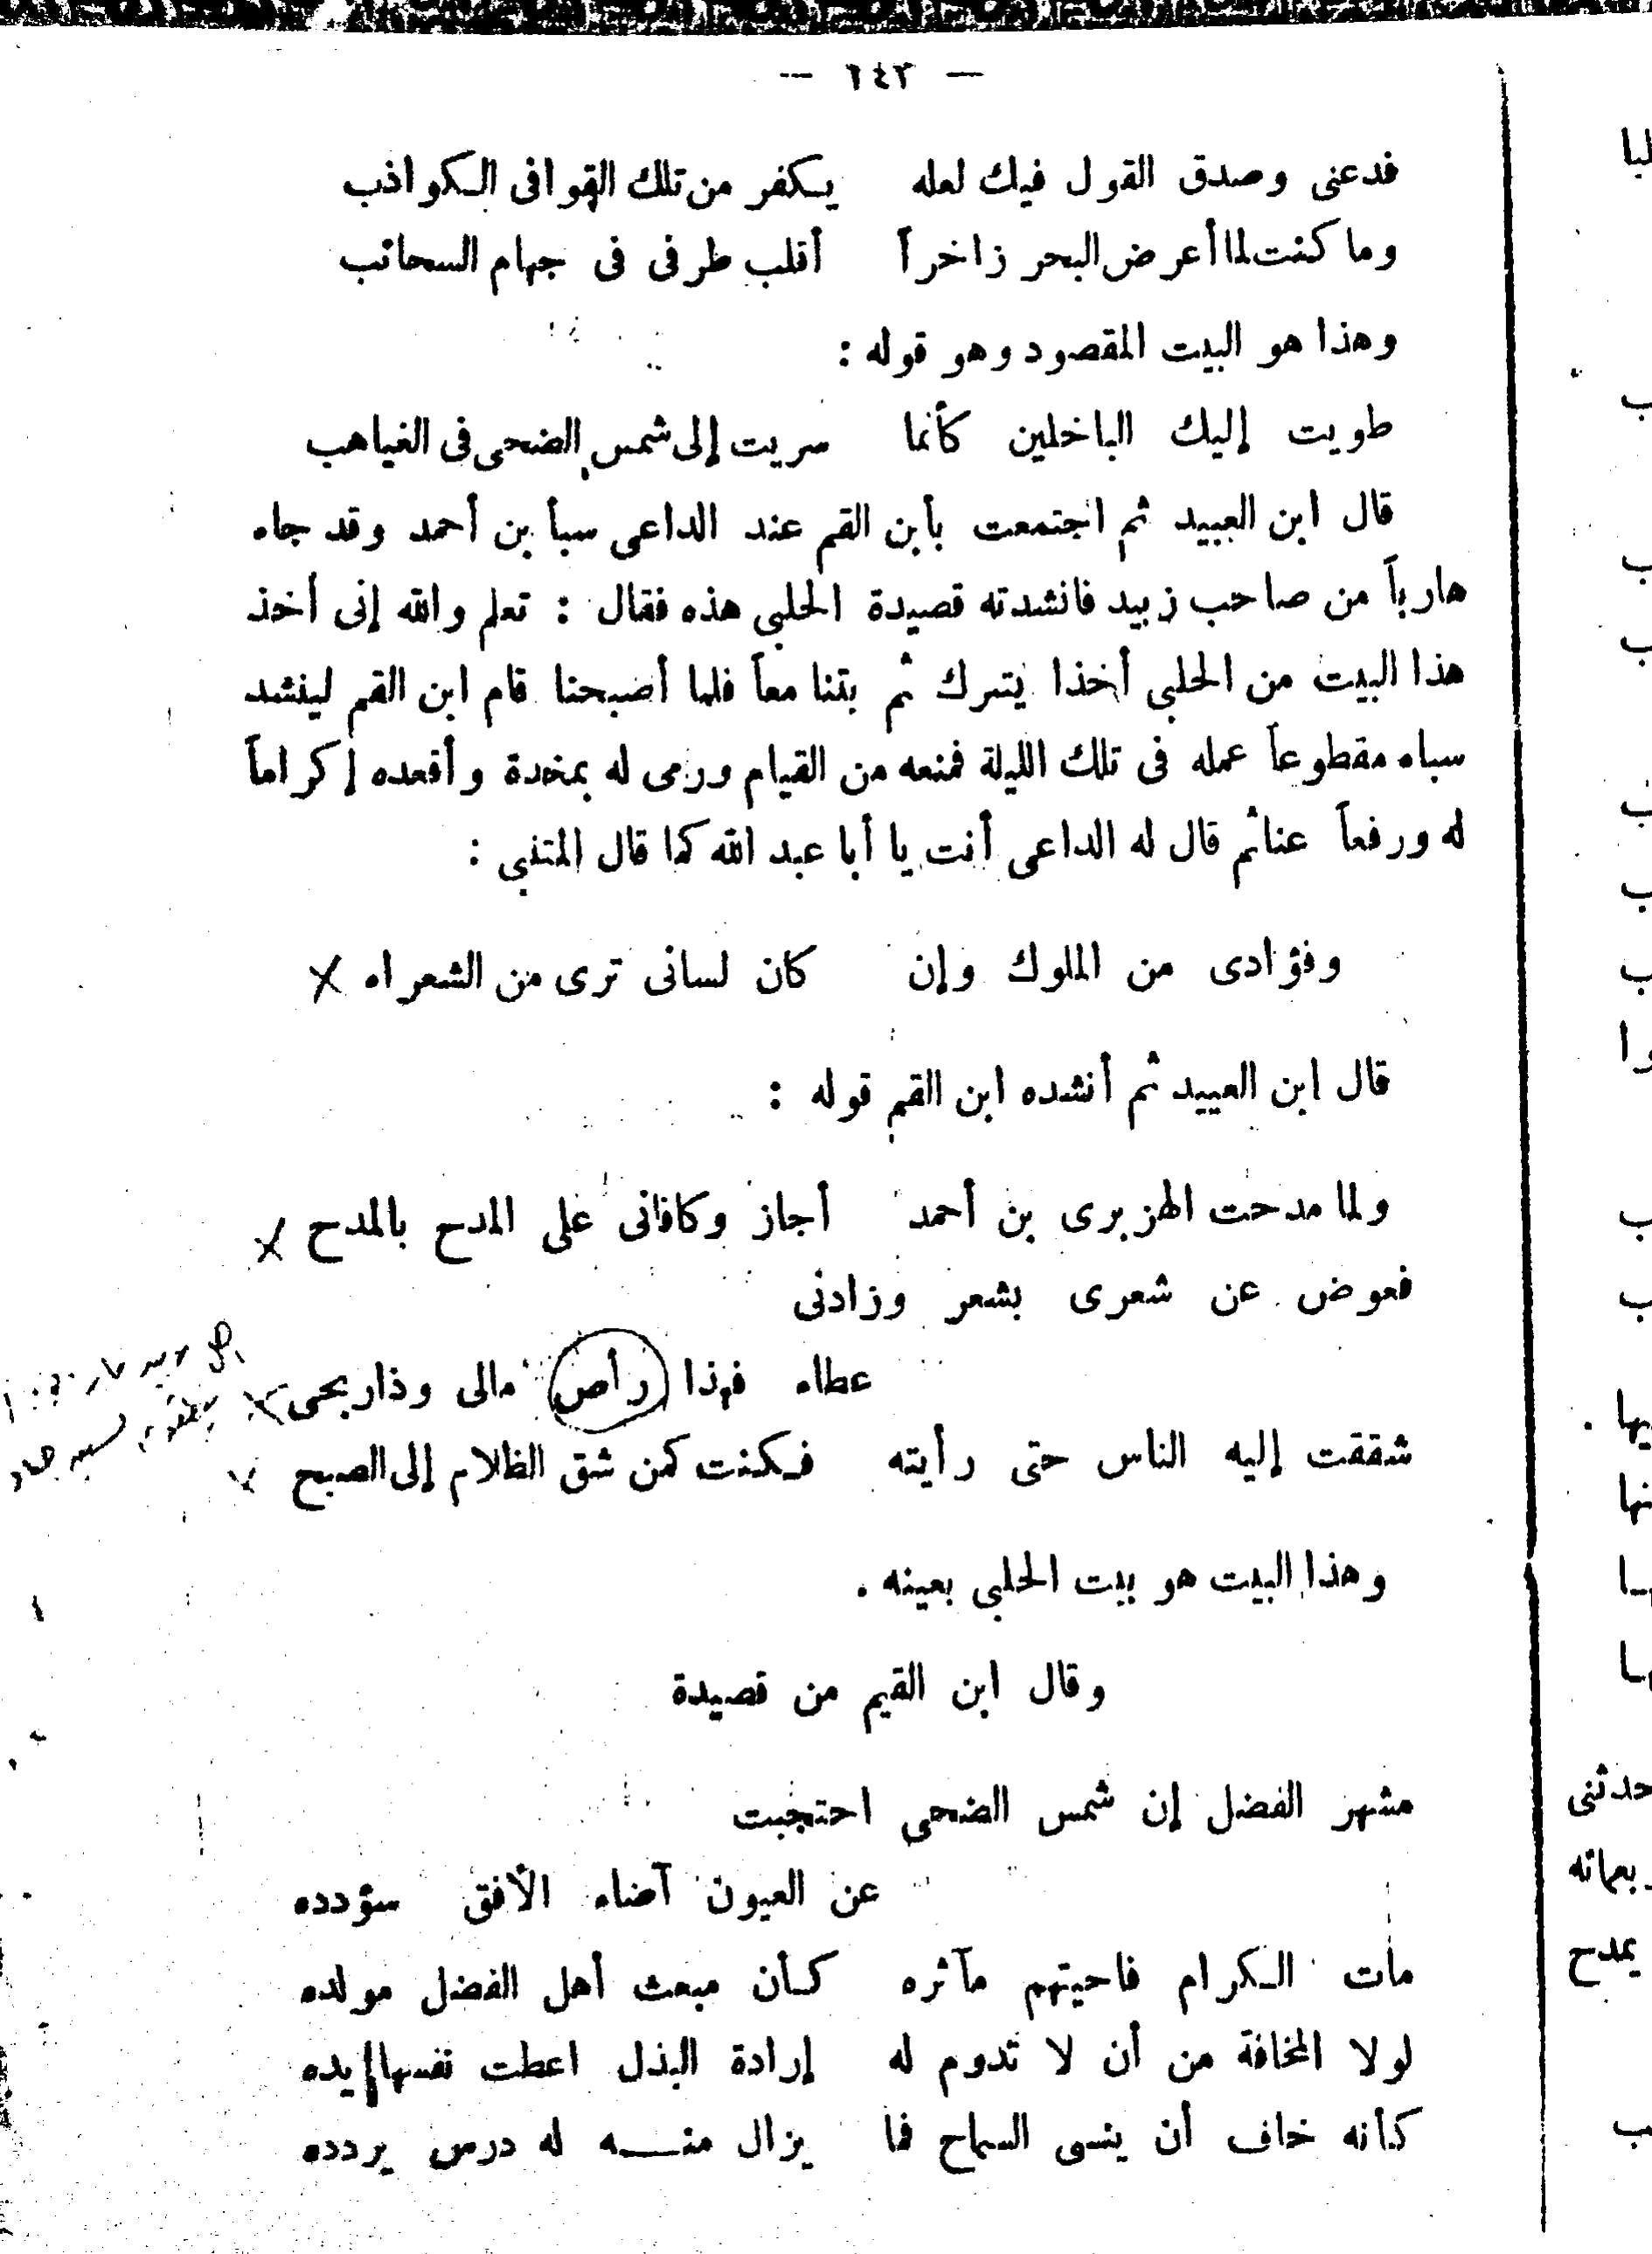 — ٦٤٢ —
فدعنى وصدق القول فيك لعله يكفر من تلك القوافى الكواذب
وما كنت لما أعرض البحر زاخراً أقلب طرفى فى جهام السحائب
وهذا هو البيت المقصود وهو قوله :
طويت إليك الباخلين كأنما سريت إلى شمس الضحى فى الغياهب
قال ابن العبيد ثم اجتمعت بأبن القم عند الداعى سبأ بن أحمد وقد جاه
هارباً من صاحب زبيد فانشدته قصيدة الحلبي هذه فقال : تعلم والله إنى أخذ
هذا البيت من الحلبي أخذا يتسرك ثم بتنا معاً فلما أصبحنا قام ابن القم لينشد
سباه مقطوعاً عمله فى تلك الليلة فمنعه من القيام ورمى له بمخدة وأقعده إكراماً
له ورفعاً عنا ثم قال له الداعى أنت يا أبا عبد الله كما قال المتنبى :
وفؤادى من الملوك وإن كان لسانى ترى من الشعراه
قال ابن العبيد ثم أنشده ابن القم قوله :
ولما مدحت الهزبرى بن أحمد أجاز وكافانى على المدح بالمدح
فعوض عن شعرى بشعر وزادنى
عطاه فهذا رأص مالى وذا ربحى
شققت إليه الناس حتى رأيته فكنت كمن شق الظلام إلى الصبح
وهذا البيت هو بيت الحلبي بعينه .
وقال ابن القيم من قصيدة
مشهر الفضل إن شمس الضحى احتجبت
عن العيون آضاه الأفق سؤدده
مات الكرام فاحيتهم مآثره كأن مبعث أهل الفضل مولده
لولا المخافة من أن لا تدوم له إرادة البذل اعطت نفسها يده
كأنه خاف أن ينسى السماح فما يزال منه له درس يردده